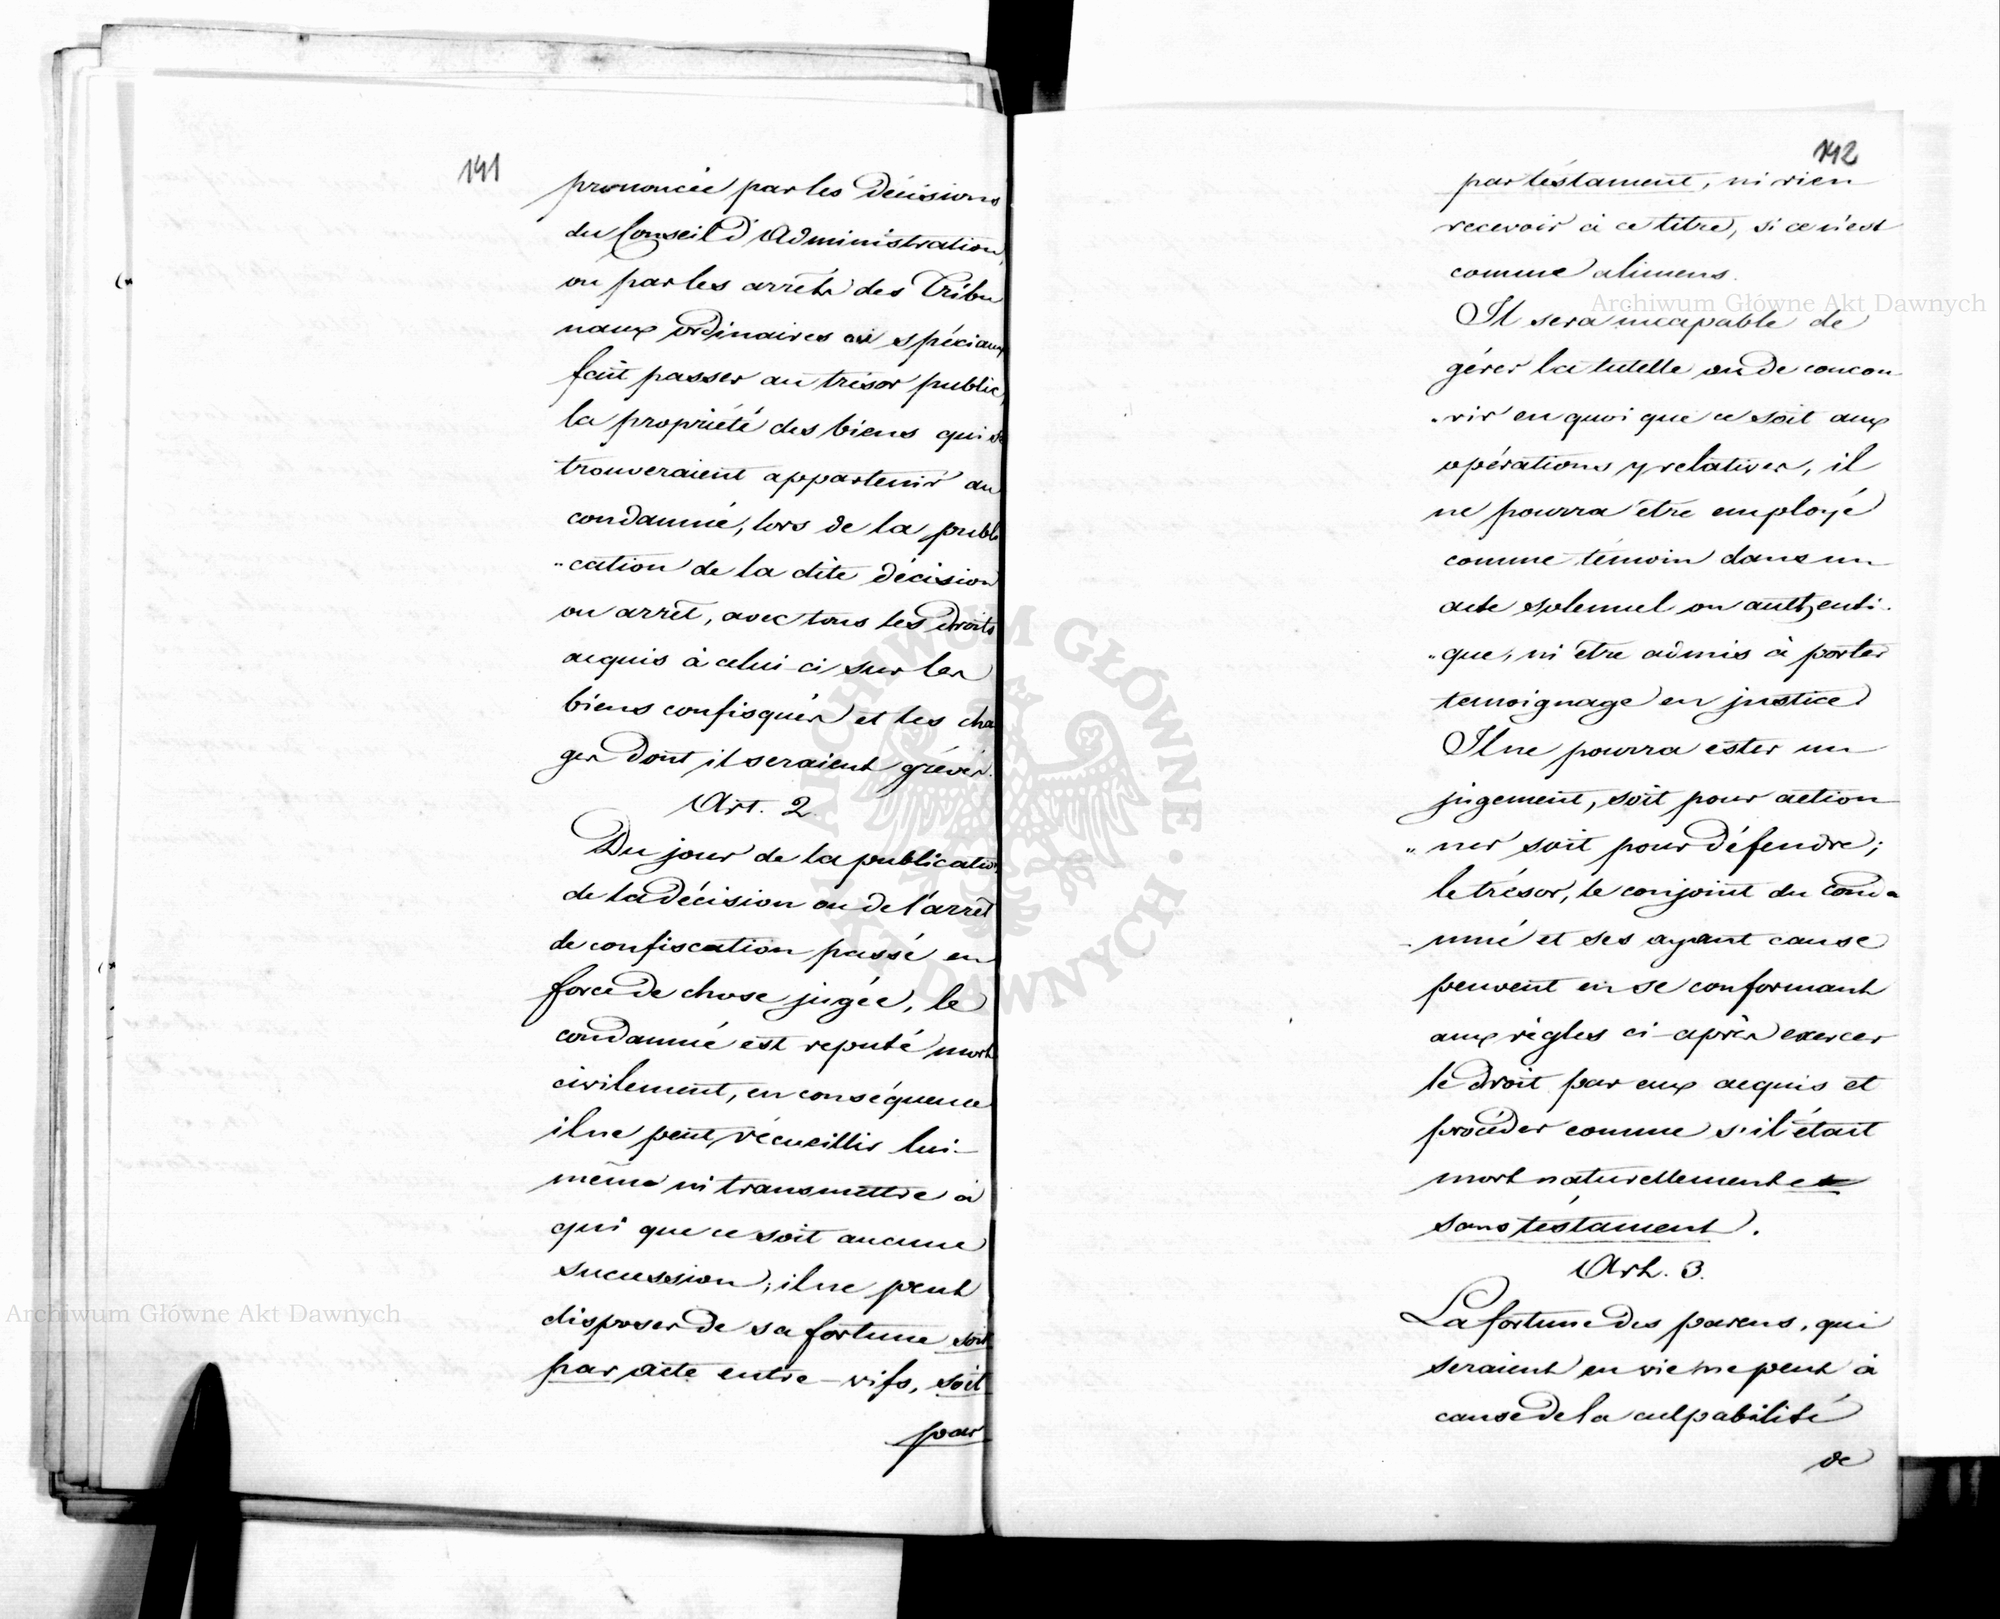 141
prononcée par les décisions
du Conseil d'Administration,
ou par les arrêts des Tribu
naux ordinaires ou spéciaux
fait passer au trésor public,
la propriété des biens qui se
trouveraient appartenir au
condamné, lors de la publi
"cation de la dite décision
ou arrêt, avec tous les droits
acquis à celui-ci sur les
biens confisqués et les cha
ges dont il seraient grévés.
Art. 2.
Du jour de la publication
de la décision ou de l'arrêt
de confiscation passé en
force de chose jugée, le
condamné est reputé mort
civilement, en conséquence
il ne peut récueillir lui-
même ni transmettre à
qui que ce soit aucune
sucession; il ne peut
disposer de sa fortune soit
par acte entre-vifs, soit
par
142
par téstament, ni rien
recevoir à ce titre, si ce n'est
comme alimens.
Il sera incapable de
gérer la tutelle ou de concou
"rir en quoi que ce soit aux
opérations y relatives, il
ne pourra être employé
comme témoin dans un
acte solennel ou authenti-
"que, ni être admis à porter
temoignage en justice.
Il ne pourra ester en
jugement, soit pour action
"ner soit pour défendre;
le trésor, le conjoint du conda
-mné et ses ayant cause
peuvent en se conformant
aux règles ci-après exercer
le droit par eux acquis et
procéder comme s'il était
mort naturellement et
sans téstament.
Art. 3.
La fortune des parens, qui
seraient en vie ne peut à
cause de la culpabilité
de
Archiwum Główne Akt Dawnych
Archiwum Główne Akt Dawnych
ARCHIWUM GŁÓWNE AKT DAWNYCH